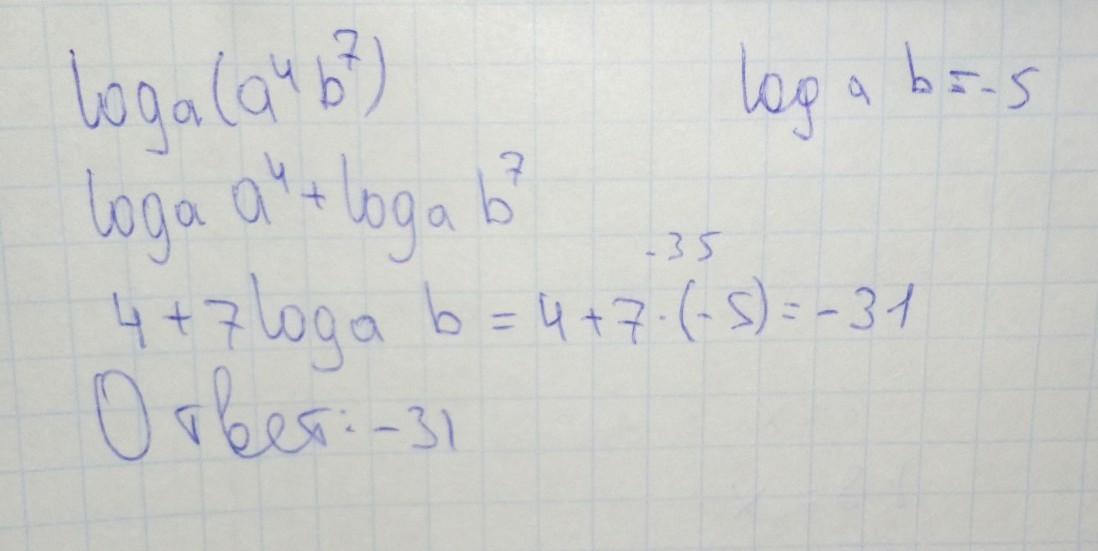 logₐ(a⁴b⁷)
logₐ b=-5
logₐ a⁴+logₐ b⁷
-35
4+7logₐ b=4+7·(-5)=-31
Ответ:-31